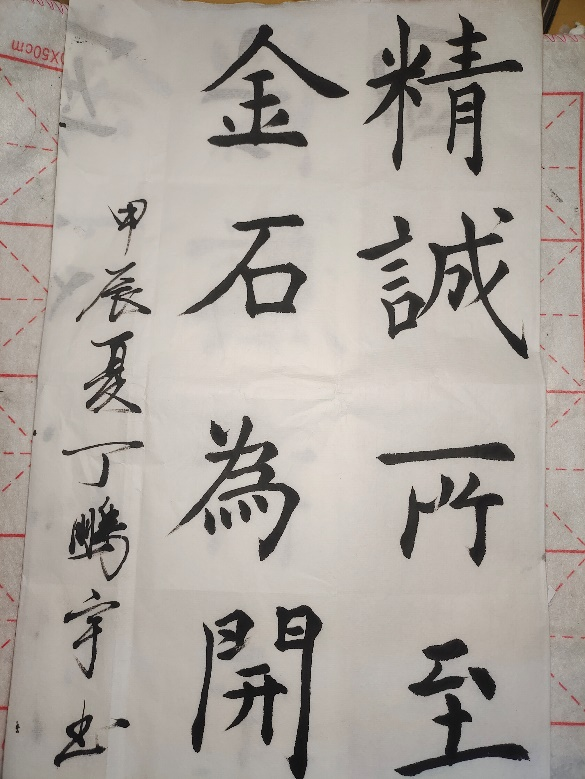 精誠所至
金石為開
甲辰夏丁鵬宇书
0X50cm